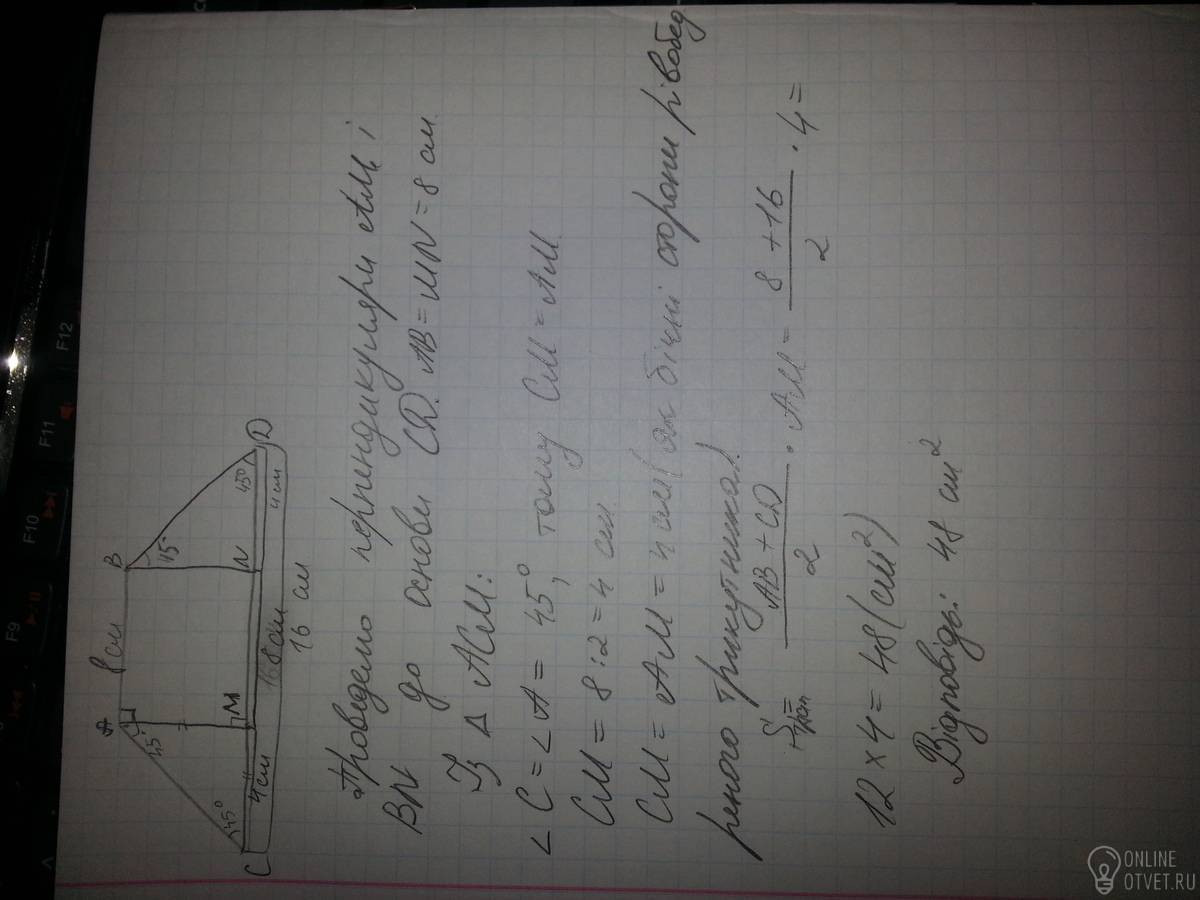 A 8 см B
45° 45°
45° 45°
C 4 см M 8 см N 4 см D
16 см
Проведемо перпендикуляри AM і
BN до основи CD. AB = MN = 8 см.
Із Δ ACM:
∠C = ∠A = 45°, тому CM = AM.
CM = 8 : 2 = 4 см
CM = AM = 4 см (як бічні сторони рівобед
реного трикутника).
Sтрап = AB + CD / 2 · AM = 8 + 16 / 2 · 4 =
12 × 4 = 48 (см²)
Відповідь: 48 см²
F9 F10 F11 F12
ONLINE
OTVET.RU